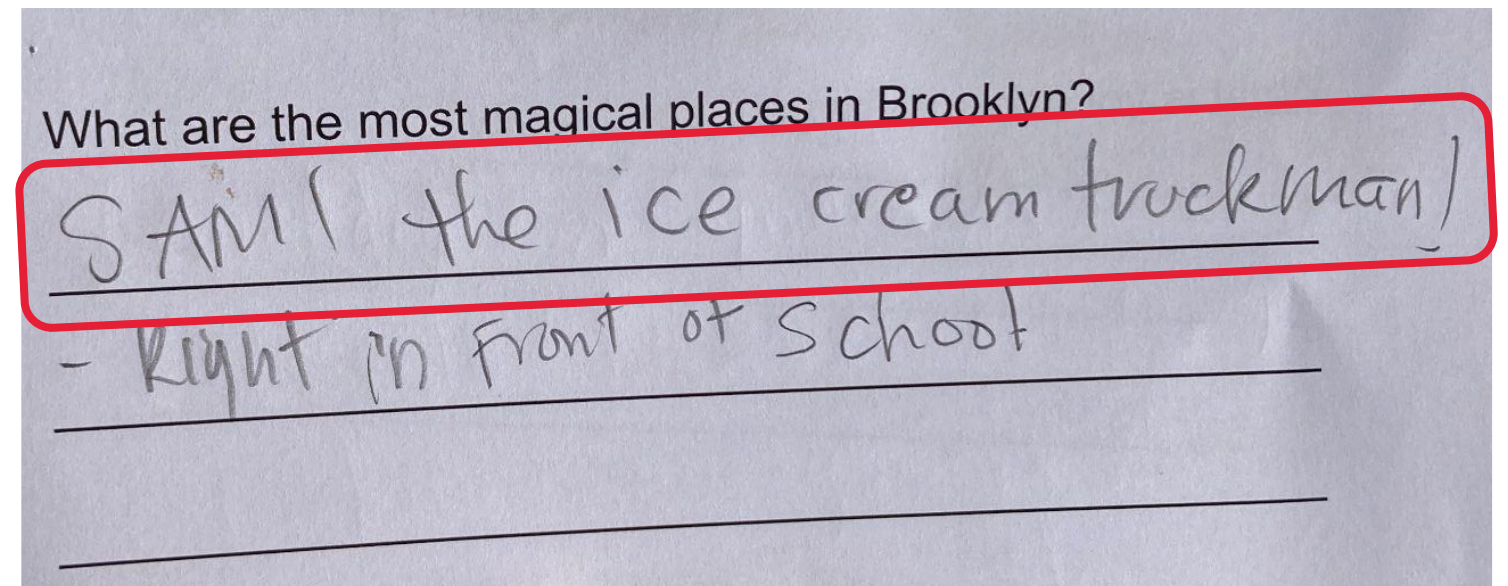 What are the most magical places in Brooklyn?
SAMI the ice cream truckman!
- Right in Front of School